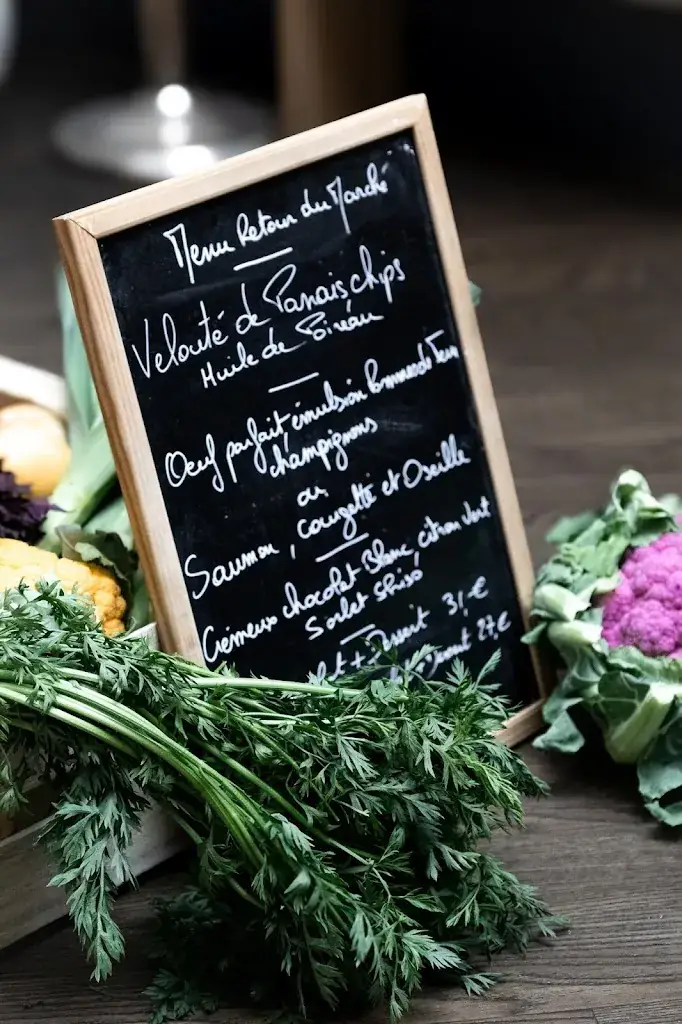 Menu Retour du Marché
Velouté de Panais, chips
Huile de Poireau
Oeuf parfait émulsion Pommes de Terre
champignons
ou
Saumon, Courgette et Oseille
Crémeux chocolat Blanc, citron vert
Sorbet shiso
+ 31,€
27,€